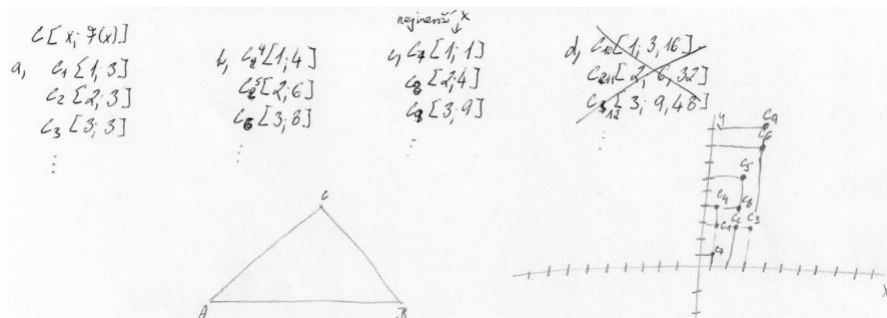 C[x; f(x)]
a, C₁ [1; 3]
C₂ [2; 3]
C₃ [3; 3]
⋮
b, C₄ [1; 4]
C₅ [2; 6]
C₆ [3; 8]
⋮
nejmenší x
c, C₇ [1; 1]
C₈ [2; 4]
C₉ [3; 9]
⋮
d, C₁₀ [1; 3,16]
C₁₁ [2; 6,32]
C₁₂ [3; 9,48]
⋮
C
A
B
y
C₉
C₆
C₅
C₄
C₈
C₁
C₂
C₃
C₇
x